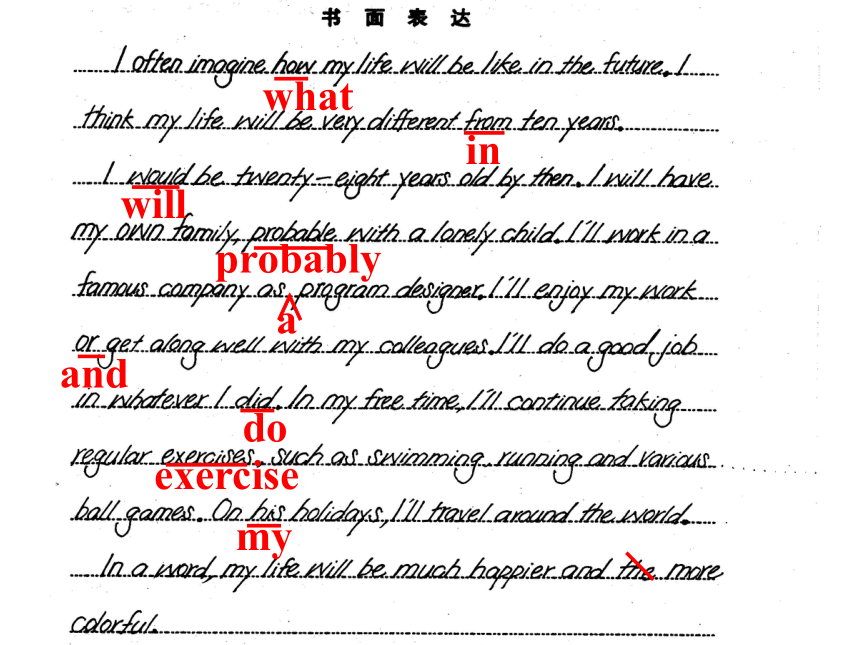 书 面 表 达
I often imagine how my life will be like in the future. I
what
think my life will be very different from ten years.
in
I would be twenty-eight years old by then. I will have
will
my own family, probable with a lonely child. I'll work in a
probably
famous company as program designer. I'll enjoy my work
a
or get along well with my colleagues. I'll do a good job
and
in whatever I did. In my free time, I'll continue taking
do
regular exercises, such as swimming, running and various
exercise
ball games. On his holidays, I'll travel around the world.
my
In a word, my life will be much happier and the more
colorful.